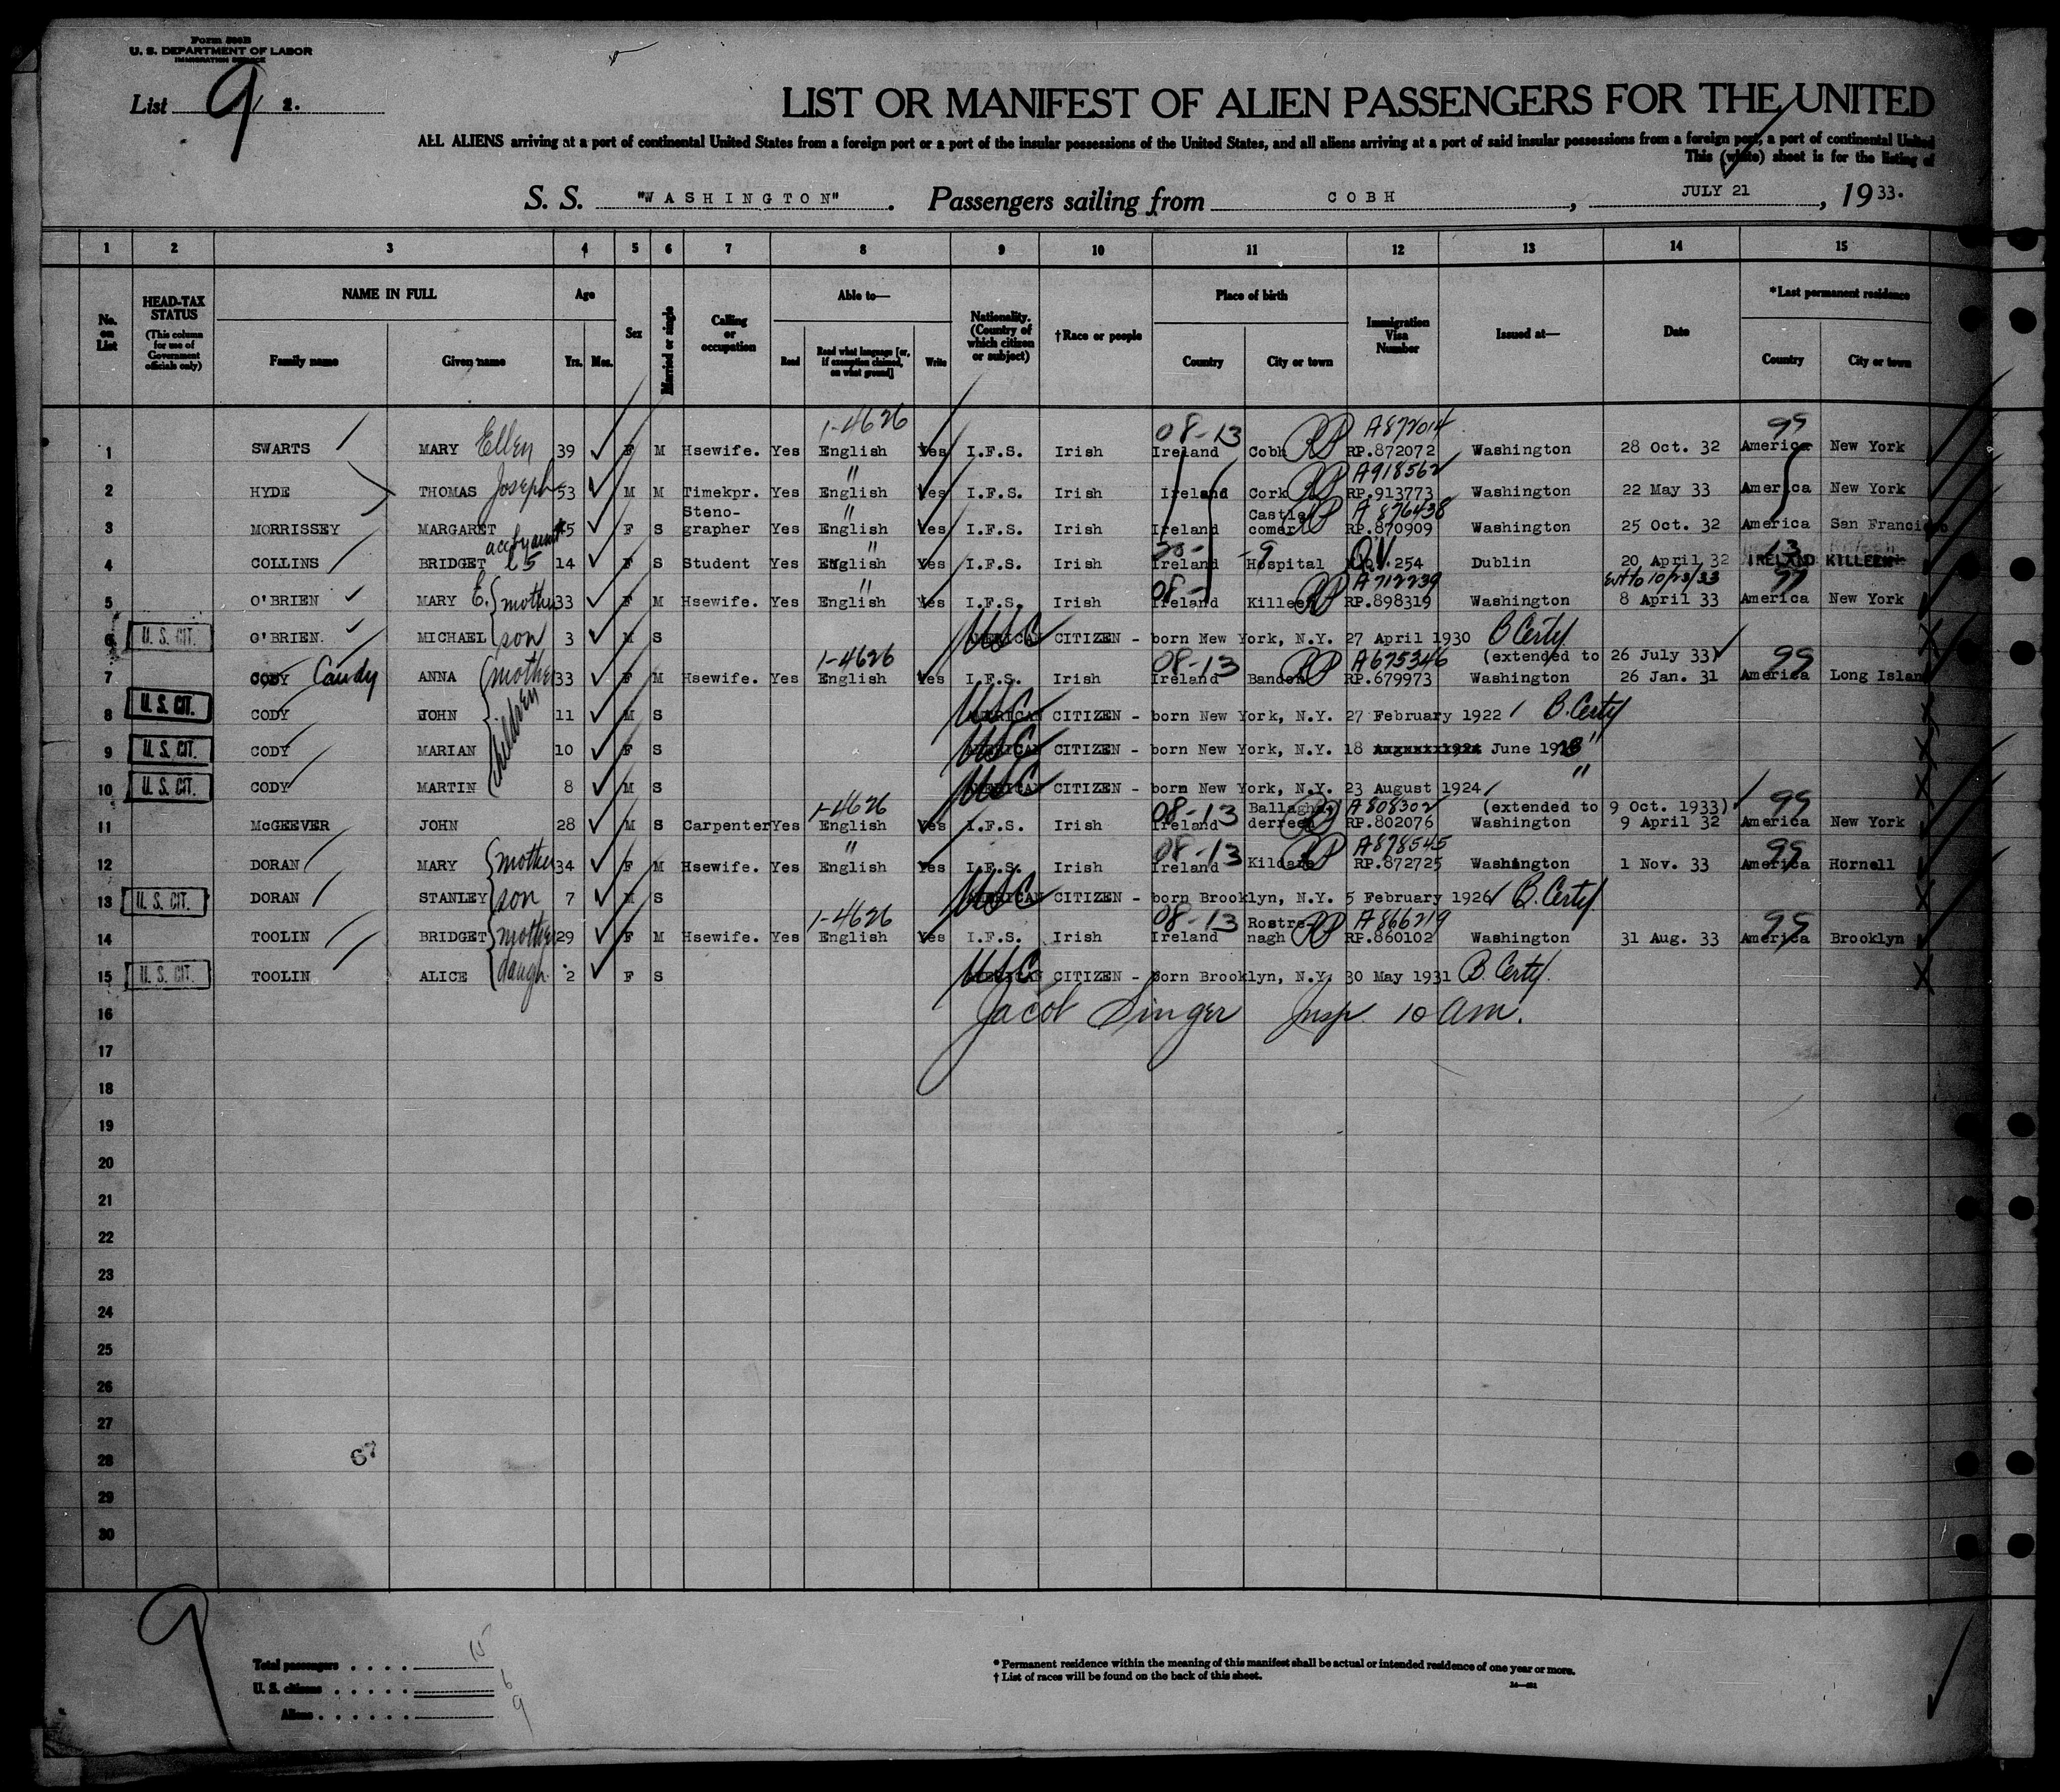 Form 500B
U. S. DEPARTMENT OF LABOR
IMMIGRATION SERVICE
List 9 2.
LIST OR MANIFEST OF ALIEN PASSENGERS FOR THE UNITED
ALL ALIENS arriving at a port of continental United States from a foreign port or a port of the insular possessions of the United States, and all aliens arriving at a port of said insular possessions from a foreign port, a port of continental United
This (white) sheet is for the listing of
S. S. "WASHINGTON". Passengers sailing from COBH, JULY 21, 1933.
1 2 3 4 5 6 7 8 9 10 11 12 13 14 15
No. on List
HEAD-TAX STATUS (This column for use of Government officials only)
NAME IN FULL Family name Given name
Age Yrs. Mos.
Sex
Married or single
Calling or occupation
Able to— Read Read what language [or, if exemption claimed, on what ground] Write
Nationality. (Country of which citizen or subject)
†Race or people
Place of birth Country City or town
Immigration Visa Number
Issued at—
Date
*Last permanent residence Country City or town
1-4626 08-13 A872014 99
1 SWARTS MARY Ellen 39 F M Hsewife. Yes English Yes I.F.S. Irish Ireland Cobh RP.872072 Washington 28 Oct. 32 America New York
" A918562
2 HYDE THOMAS Joseph 53 M M Timekpr. Yes English Yes I.F.S. Irish Ireland Cork RP.913773 Washington 22 May 33 America New York
Steno- " Castle A 876438
3 MORRISSEY MARGARET 45 F S grapher Yes English Yes I.F.S. Irish Ireland comer RP.870909 Washington 25 Oct. 32 America San Francisco
" -9 QV 13
4 COLLINS BRIDGET 14 F S Student Yes English Yes I.F.S. Irish Ireland Hospital 254 Dublin 20 April 32 IRELAND KILLEEN
" 08- A712239 ext to 10/23/33 99
5 O'BRIEN MARY E. mother 33 F M Hsewife. Yes English Yes I.F.S. Irish Ireland Killeen RP.898319 Washington 8 April 33 America New York
6 U. S. CIT. O'BRIEN. MICHAEL son 3 M S USC AMERICAN CITIZEN - born New York, N.Y. 27 April 1930 B Certf
1-4626 08-13 A675346 (extended to 26 July 33) 99
7 CODY Caudy ANNA mother 33 F M Hsewife. Yes English Yes I.F.S. Irish Ireland Bandon RP.679973 Washington 26 Jan. 31 America Long Island
8 U. S. CIT. CODY JOHN children 11 M S USC AMERICAN CITIZEN - born New York, N.Y. 27 February 1922 B. Certf
9 U. S. CIT. CODY MARIAN 10 F S USC AMERICAN CITIZEN - born New York, N.Y. 18 June 1923 "
10 U. S. CIT. CODY MARTIN 8 M S USC AMERICAN CITIZEN - born New York, N.Y. 23 August 1924 "
1-4626 08-13 Ballagha- A808302 (extended to 9 Oct. 1933) 99
11 McGEEVER JOHN 28 M S Carpenter Yes English Yes I.F.S. Irish Ireland derreen RP.802076 Washington 9 April 32 America New York
" 08-13 A878545 99
12 DORAN MARY mother 34 F M Hsewife. Yes English Yes I.F.S. Irish Ireland Kildare RP.872725 Washington 1 Nov. 33 America Hornell
13 U. S. CIT. DORAN STANLEY son 7 M S USC AMERICAN CITIZEN - born Brooklyn, N.Y. 5 February 1926 B. Certf.
1-4626 08-13 Rostre- A866219 99
14 TOOLIN BRIDGET mother 29 F M Hsewife. Yes English Yes I.F.S. Irish Ireland nagh RP.860102 Washington 31 Aug. 33 America Brooklyn
15 U. S. CIT. TOOLIN ALICE daugh. 2 F S USC AMERICAN CITIZEN - Born Brooklyn, N.Y. 30 May 1931 B. Certf.
16 Jacob Singer Insp. 10 am.
17
18
19
20
21
22
23
24
25
26
27
28 67
29
30
9
Total passengers 15
U. S. citizens 6
Aliens 9
* Permanent residence within the meaning of this manifest shall be actual or intended residence of one year or more.
† List of races will be found on the back of this sheet.